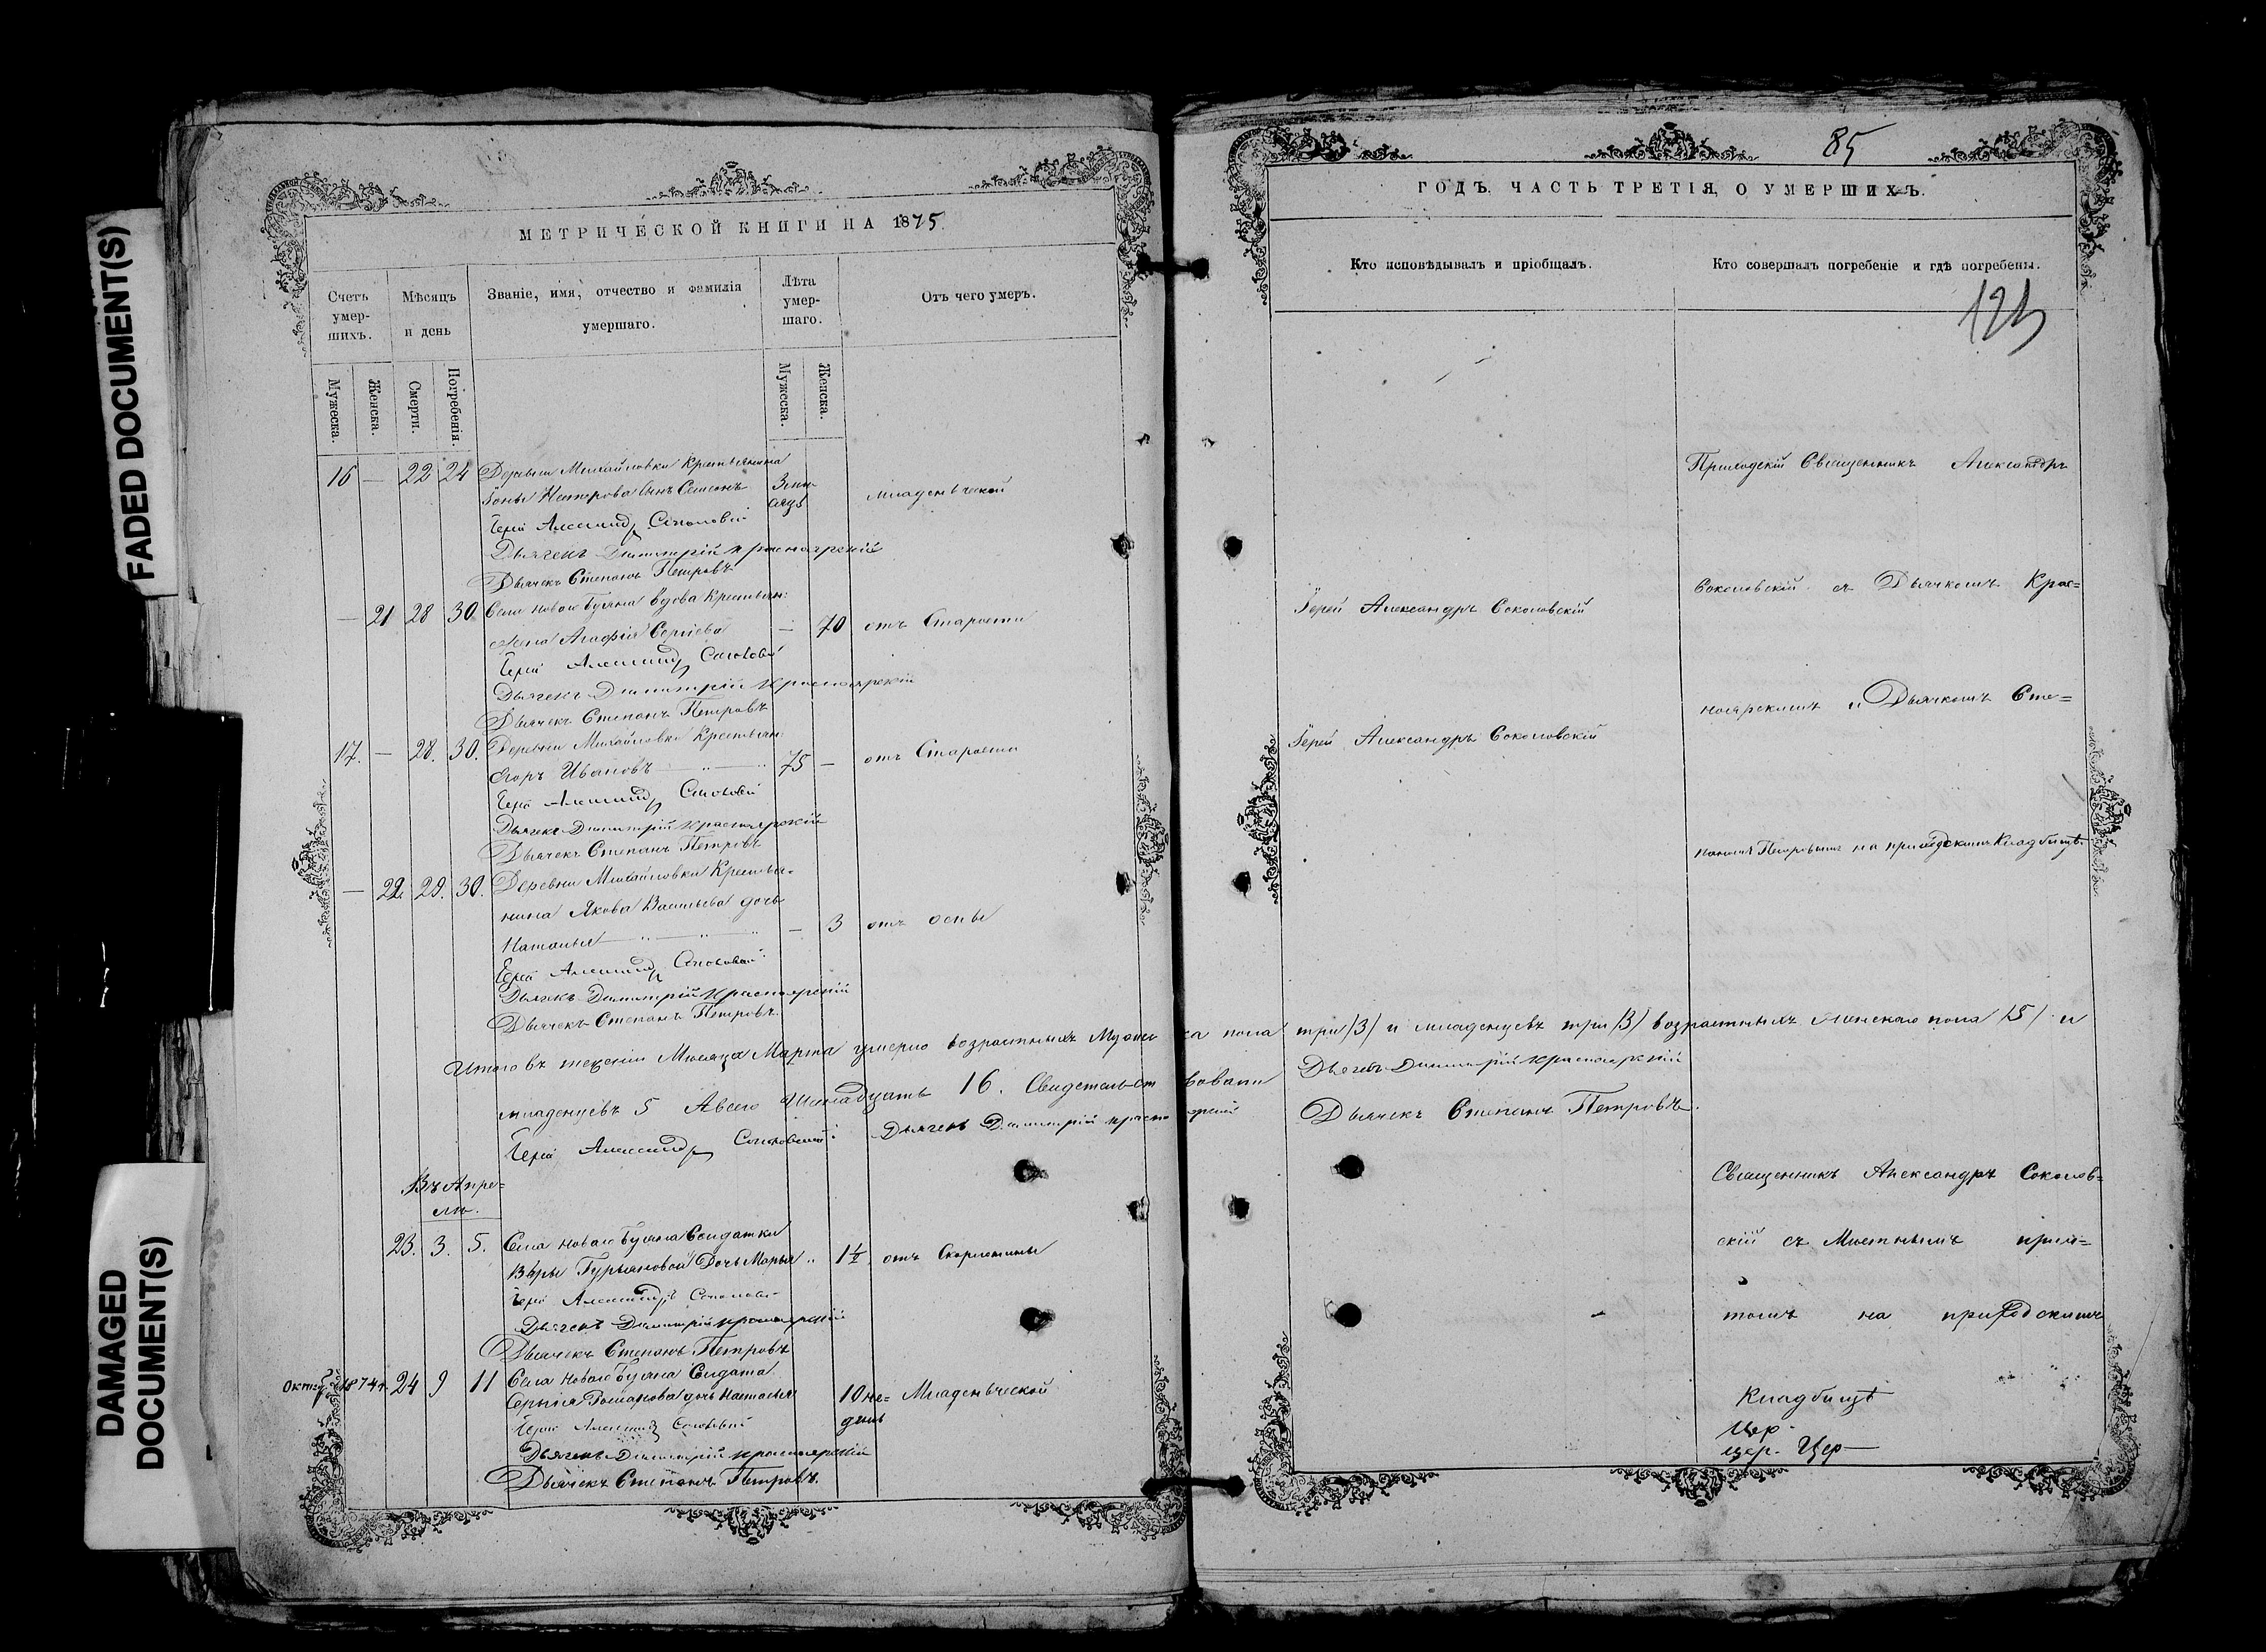 FADED DOCUMENT(S)
DAMAGED DOCUMENT(S)
МЕТРИЧЕСКОЙ КНИГИ НА 1875
Счетъ умер-шихъ.
Мѣсяцъ и день
Званіе, имя, отчество и фамилія умершаго.
Лѣта умер-шаго.
Отъ чего умеръ.
Мужеска.
Женска.
Смерти.
Погребенія.
Мужеска.
Женска.
16 — 22 24 Деревни Михайловки Крестьянина
сынъ Семенъ младенческой
Іерей Александръ Соколовскій
Дьячекъ Димитрій Красноярскій
Дьячекъ Степанъ Петровъ
— 21 28 30 Села Новаго Буяна вдова Крестьян:
Агафія Сергіева — 70 отъ Старости
Іерей Александръ Соколовскій
Дьячекъ Димитрій Красноярскій
Дьячекъ Степанъ Петровъ
17. — 28. 30. Деревни Михайловки Крестьян:
Егоръ Ивановъ 75 — отъ Старости
Іерей Александръ Соколовскій
Дьячекъ Димитрій Красноярскій
Дьячекъ Степанъ Петровъ
— 22. 29. 30. Деревни Михайловки Крестья-
нина Якова Васильева дочь
Наталья — 3 отъ оспы
Іерей Александръ Соколовскій
Дьячекъ Димитрій Красноярскій
Дьячекъ Степанъ Петровъ.
Итого въ теченіи Мѣсяца Марта умерло возрастныхъ Мужеска пола три /3/ и младенцевъ три /3/ возрастныхъ Женскаго пола /5/ и
младенцевъ 5 Авсего Шестнадцать 16. Свидетельствовали
Іерей Александръ Соколовскій: Дьячекъ Димитрій Красноярскій
Въ Апре=
лѣ.
23. 3. 5. Села Новаго Буяна Солдатки
Вѣры Гурьяновой Дочь Марья " 1½ отъ Скорлатины
Іерей Александръ
Дьячекъ Димитрій Красноярскій
Дьячекъ Степанъ Петровъ
1874 г. 24 9 11 Села Новаго Буяна Солдата
Сергія Романова дочь Наталья 10 не= Младенческой
Іерей Александръ Соколовскій дель
Дьячекъ Димитрій Красноярскій
Дьячекъ Степанъ Петровъ.
85
ГОДЪ. ЧАСТЬ ТРЕТІЯ, О УМЕРШИХЪ.
Кто исповѣдывалъ и пріобщалъ.
Кто совершалъ погребеніе и гдѣ погребены.
Приходскій Священникъ Александръ
Соколовскій съ Дьячкомъ Крас=
Іерей Александръ Соколовскій
ноярскимъ и Дьячкомъ Сте=
Іерей Александръ Соколовскій
паномъ Петровымъ на приходскомъ Кладбищѣ.
Дьячекъ Димитрій Красноярскій
Дьячекъ Степанъ Петровъ.
Священникъ Александръ Соколов=
скій съ Мѣстнымъ прич=
томъ на приходскимъ
Кладбищѣ
Цер-
цер. Цер—